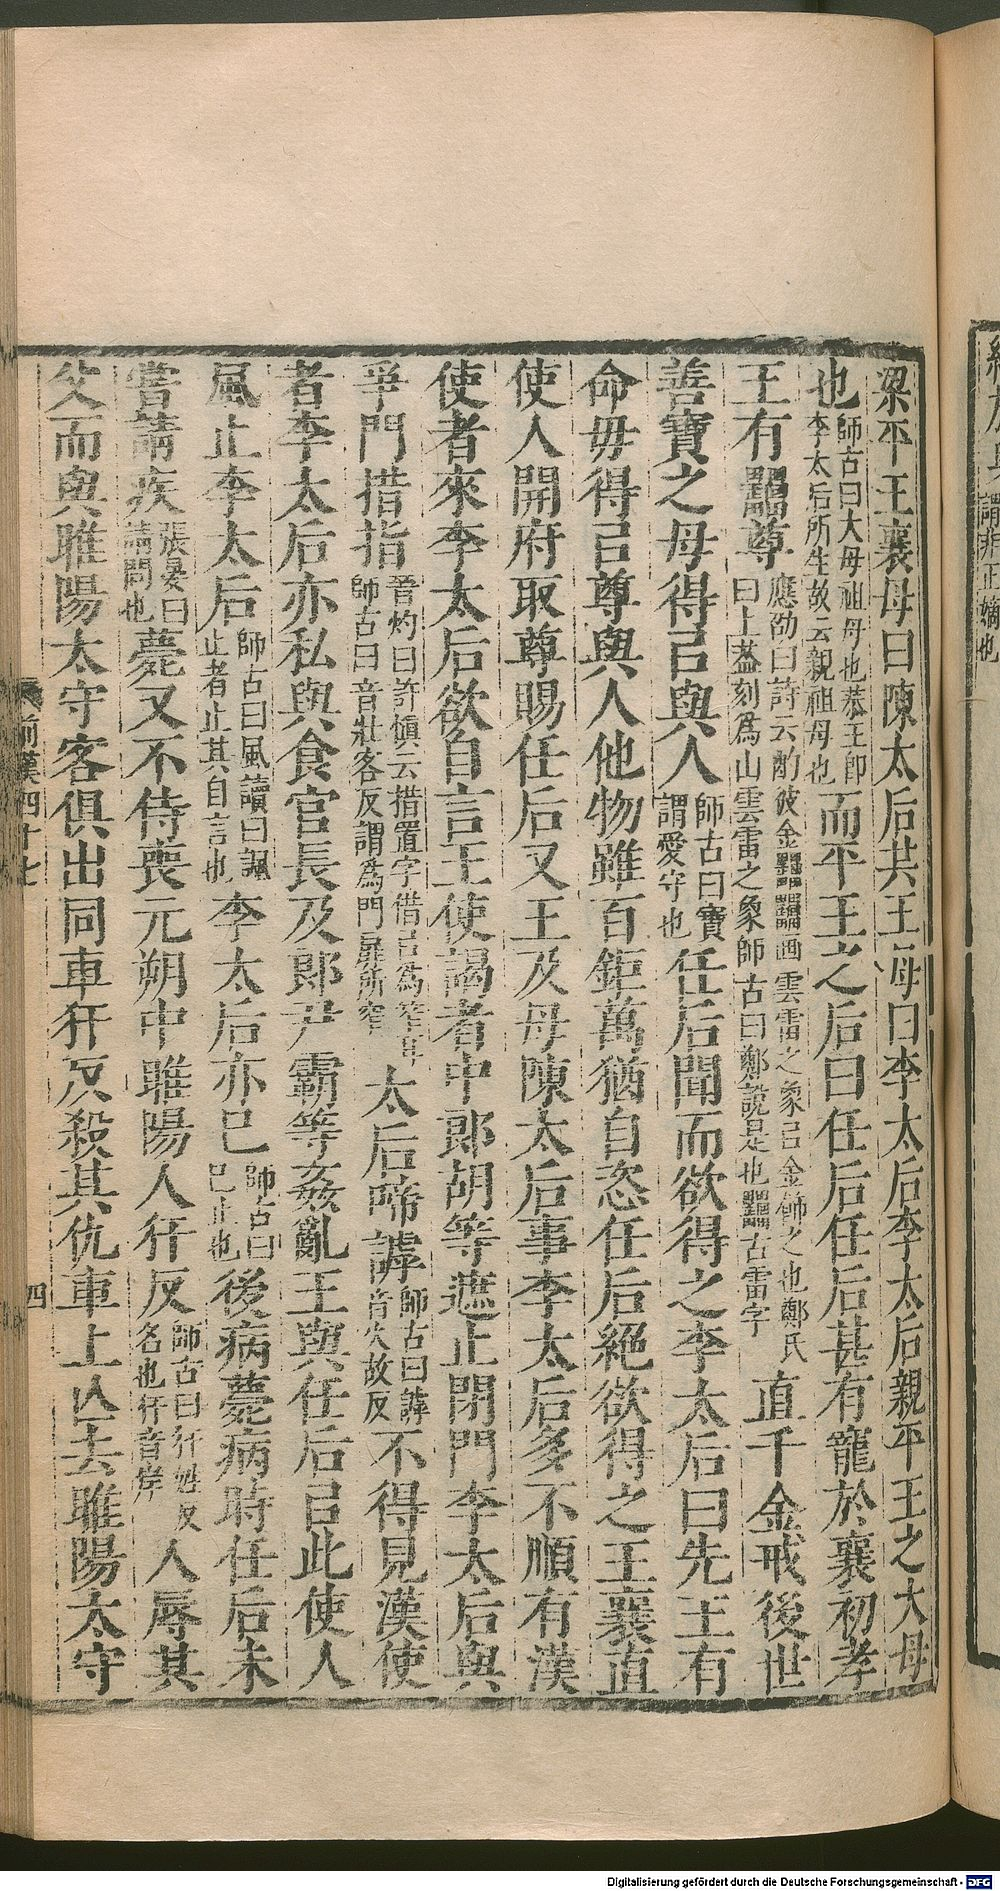 謂非正嫡也
梁平王襄母曰陳太后共王母曰李太后李太后親平王之大母
也師古曰大母祖母也恭王卽李太后所生故云親祖母也而平王之后曰任后任后甚有寵於襄初孝
王有罍尊應劭曰詩云酌彼金罍罍畫雲雷之象㠯金飾之也鄭氏曰上蓋刻爲山雲雷之象師古曰鄭說是也罍古雷字直千金戒後世
善寶之毋得㠯與人師古曰寶謂愛守也任后聞而欲得之李太后曰先王有
命毋得㠯尊與人他物雖百鉅萬猶自恣任后絕欲得之王襄直
使人開府取尊賜任后又王及母陳太后事李太后多不順有漢
使者來李太后欲自言王使謁者中郞胡等遮止閉門李太后與
爭門措指晉灼曰許愼云措置字借㠯爲笮耳師古曰音壯客反謂爲門扉所笮太后啼謼師古曰謼音火故反不得見漢使
者李太后亦私與食官長及郞尹霸等姦亂王與任后㠯此使人
風止李太后師古曰風讀曰諷止者止其自言也李太后亦已師古曰已止也後病薨病時任后未
嘗請疾張晏曰請問也薨又不侍喪元朔中睢陽人犴反師古曰犴姓反名也犴音岸人辱其
父而與睢陽太守客俱出同車犴反殺其仇車上亾去睢陽太守
前漢四十七
四
Digitalisierung gefördert durch die Deutsche Forschungsgemeinschaft - DFG